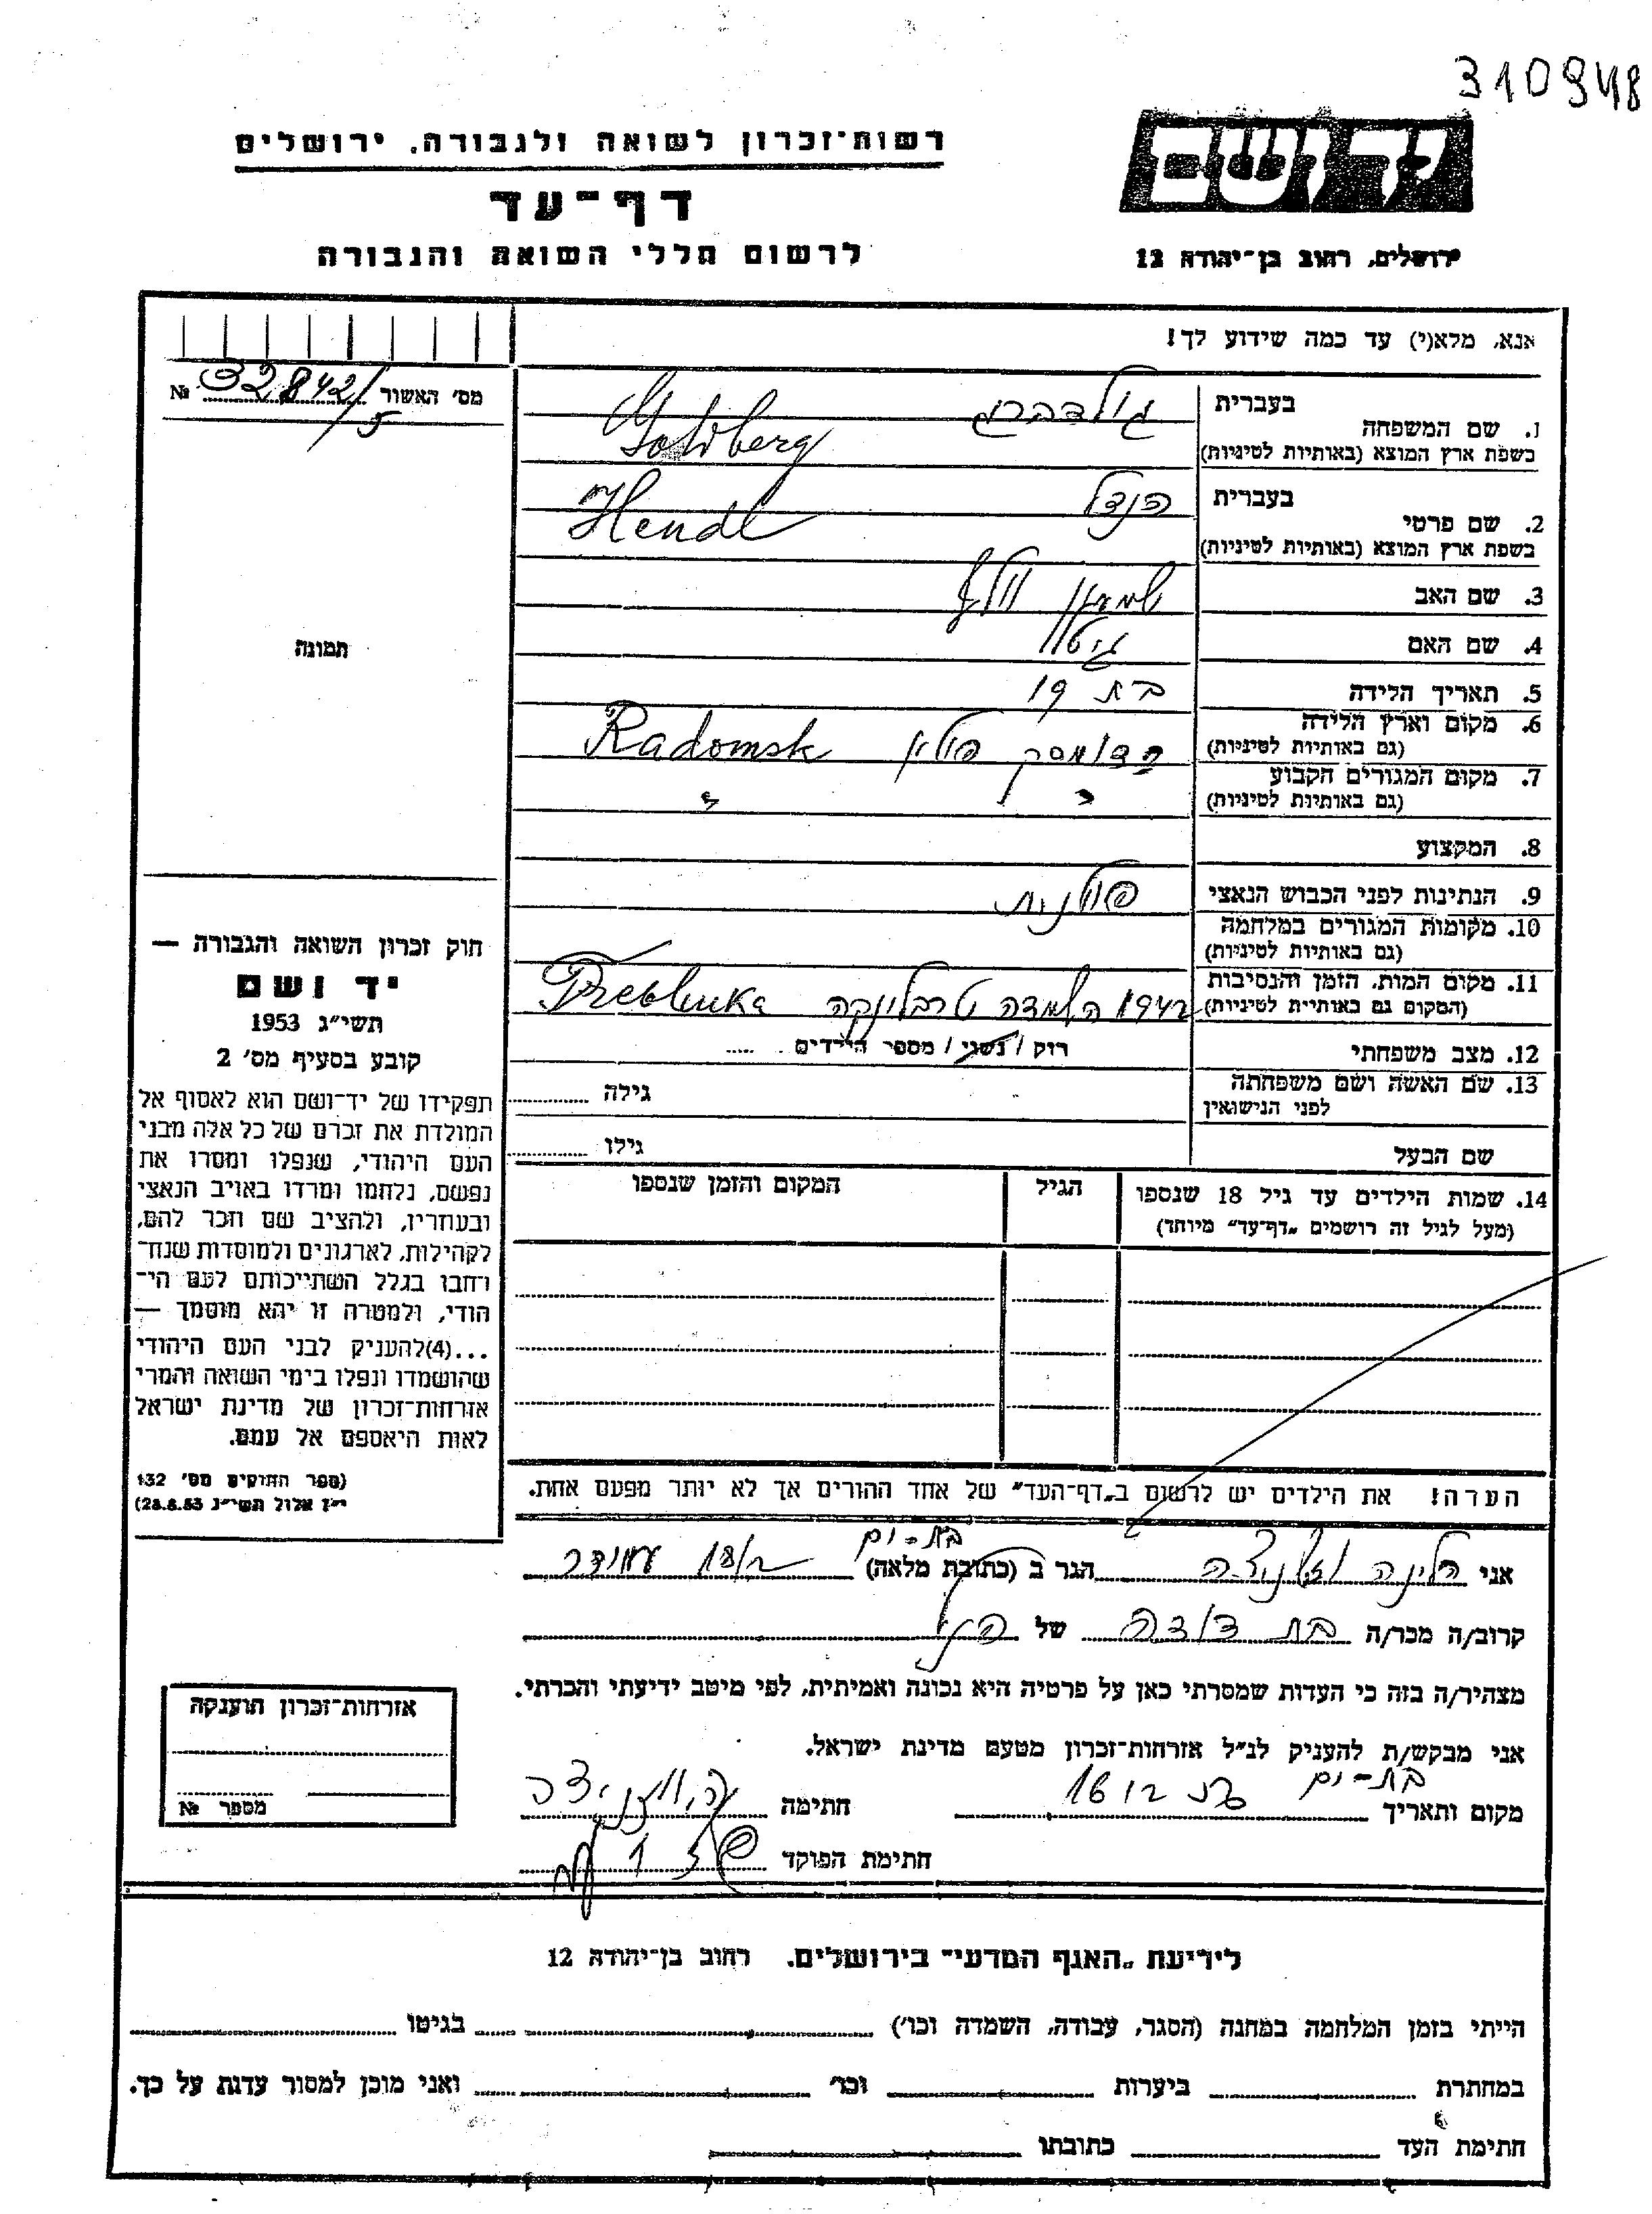 310948
רשות־זכרון לשואה ולגבורה, ירושלים
דף־עד
לרשום חללי השואה והגבורה
יד ושם
ירושלים, רחוב בן־יהודה 12
אנא, מלא(י) עד כמה שידוע לך!
מס' האשור 32842/5 №
תמונה
1. שם המשפחה
בעברית גולדברג
בשפת ארץ המוצא (באותיות לטיניות) Goldberg
2. שם פרטי
בעברית הנדל
בשפת ארץ המוצא (באותיות לטיניות) Hendl
3. שם האב שמעון וולף
4. שם האם גיטל
5. תאריך הלידה בת 19
6. מקום וארץ הלידה
(גם באותיות לטיניות) רדומסק פולין Radomsk
7. מקום המגורים הקבוע
(גם באותיות לטיניות) " "
8. המקצוע
9. הנתינות לפני הכבוש הנאצי פולנית
10. מקומות המגורים במלחמה
(גם באותיות לטיניות)
11. מקום המות, הזמן והנסיבות
(המקום גם באותיות לטיניות) 1942 השמדה טרבלינקה Treblinka
12. מצב משפחתי רוק / נשוי / מספר הילדים .....
13. שם האשה ושם משפחתה
לפני הנישואין
גילה
שם הבעל גילו
14. שמות הילדים עד גיל 18 שנספו
(מעל לגיל זה רושמים „דף־עד" מיוחד)
הגיל
המקום והזמן שנספו
הערה! את הילדים יש לרשום ב„דף־העד" של אחד ההורים אך לא יותר מפעם אחת.
חוק זכרון השואה והגבורה —
יד ושם
תשי"ג 1953
קובע בסעיף מס' 2
תפקידו של יד־ושם הוא לאסוף אל
המולדת את זכרם של כל אלה מבני
העם היהודי, שנפלו ומסרו את
נפשם, נלחמו ומרדו באויב הנאצי
ובעוזריו, ולהציב שם וזכר להם,
לקהילות, לארגונים ולמוסדות שנח־
רחבו בגלל השתייכותם לעם הי־
הודי, ולמטרה זו יהא מוסמך —
...(4)להעניק לבני העם היהודי
שהושמדו ונפלו בימי השואה והמרי
אזרחות־זכרון של מדינת ישראל
לאות היאספם אל עמם.
(ספר החוקים מס' 132
י"ז אלול תשי"ג 28.8.53)
בת-ים
אני הלינה הגר ב (כתובת מלאה) 18/2
קרוב/ה מכר/ה בת דודה של הנ"ל
מצהיר/ה בזה כי העדות שמסרתי כאן על פרטיה היא נכונה ואמיתית, לפי מיטב ידיעתי והכרתי.
אני מבקש/ת להעניק לנ"ל אזרחות־זכרון מטעם מדינת ישראל.
בת-ים
מקום ותאריך 16 חתימה
חתימת הפוקד
אזרחות־זכרון תוענקה
מספר №
לידיעת „האגף המדעי" בירושלים. רחוב בן־יהודה 12
הייתי בזמן המלחמה במחנה (הסגר, עבודה, השמדה וכו') בגיטו
במחתרת ביערות וכו' ואני מוכן למסור עדות על כך.
חתימת העד כתובתו